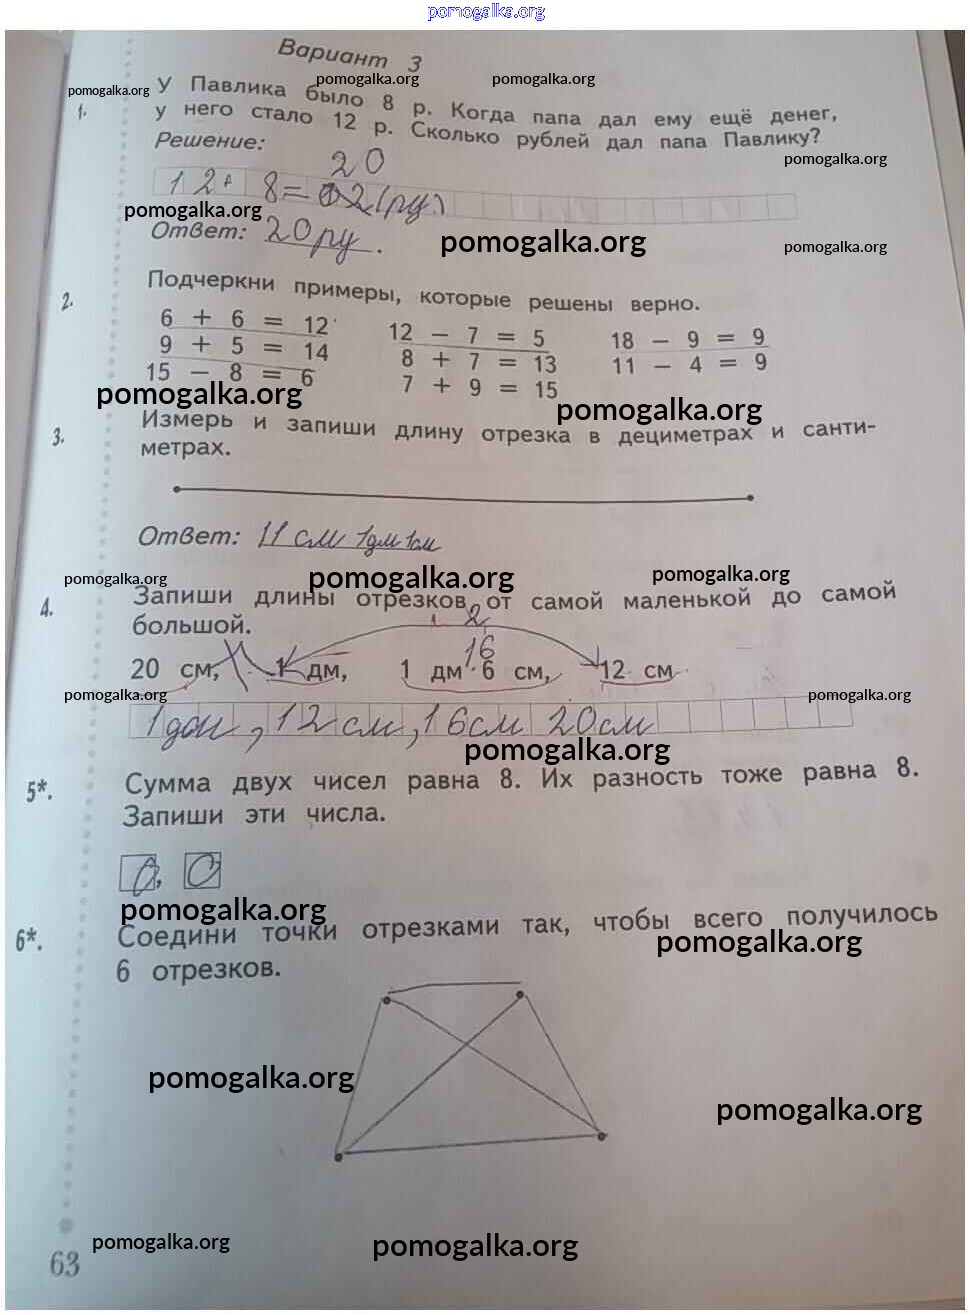 pomogalka.org
Вариант 3
pomogalka.org pomogalka.org pomogalka.org
1. У Павлика было 8 р. Когда папа дал ему ещё денег,
у него стало 12 р. Сколько рублей дал папа Павлику?
Решение:
pomogalka.org
20
12+ 8= 12(ру)
pomogalka.org
Ответ: 20 ру.
pomogalka.org pomogalka.org
2. Подчеркни примеры, которые решены верно.
6 + 6 = 12 12 − 7 = 5 18 − 9 = 9
9 + 5 = 14 8 + 7 = 13 11 − 4 = 9
15 − 8 = 6 7 + 9 = 15
pomogalka.org pomogalka.org
3. Измерь и запиши длину отрезка в дециметрах и санти-
метрах.
Ответ: 11 см 1дм 1см
pomogalka.org pomogalka.org pomogalka.org
4. Запиши длины отрезков от самой маленькой до самой
большой.
1 2
16
20 см, 1 дм, 1 дм 6 см, 12 см
pomogalka.org pomogalka.org
1дм, 12 см, 16см 20см
pomogalka.org
5*. Сумма двух чисел равна 8. Их разность тоже равна 8.
Запиши эти числа.
0, 0
pomogalka.org
6*. Соедини точки отрезками так, чтобы всего получилось
pomogalka.org
6 отрезков.
pomogalka.org
pomogalka.org
63
pomogalka.org pomogalka.org